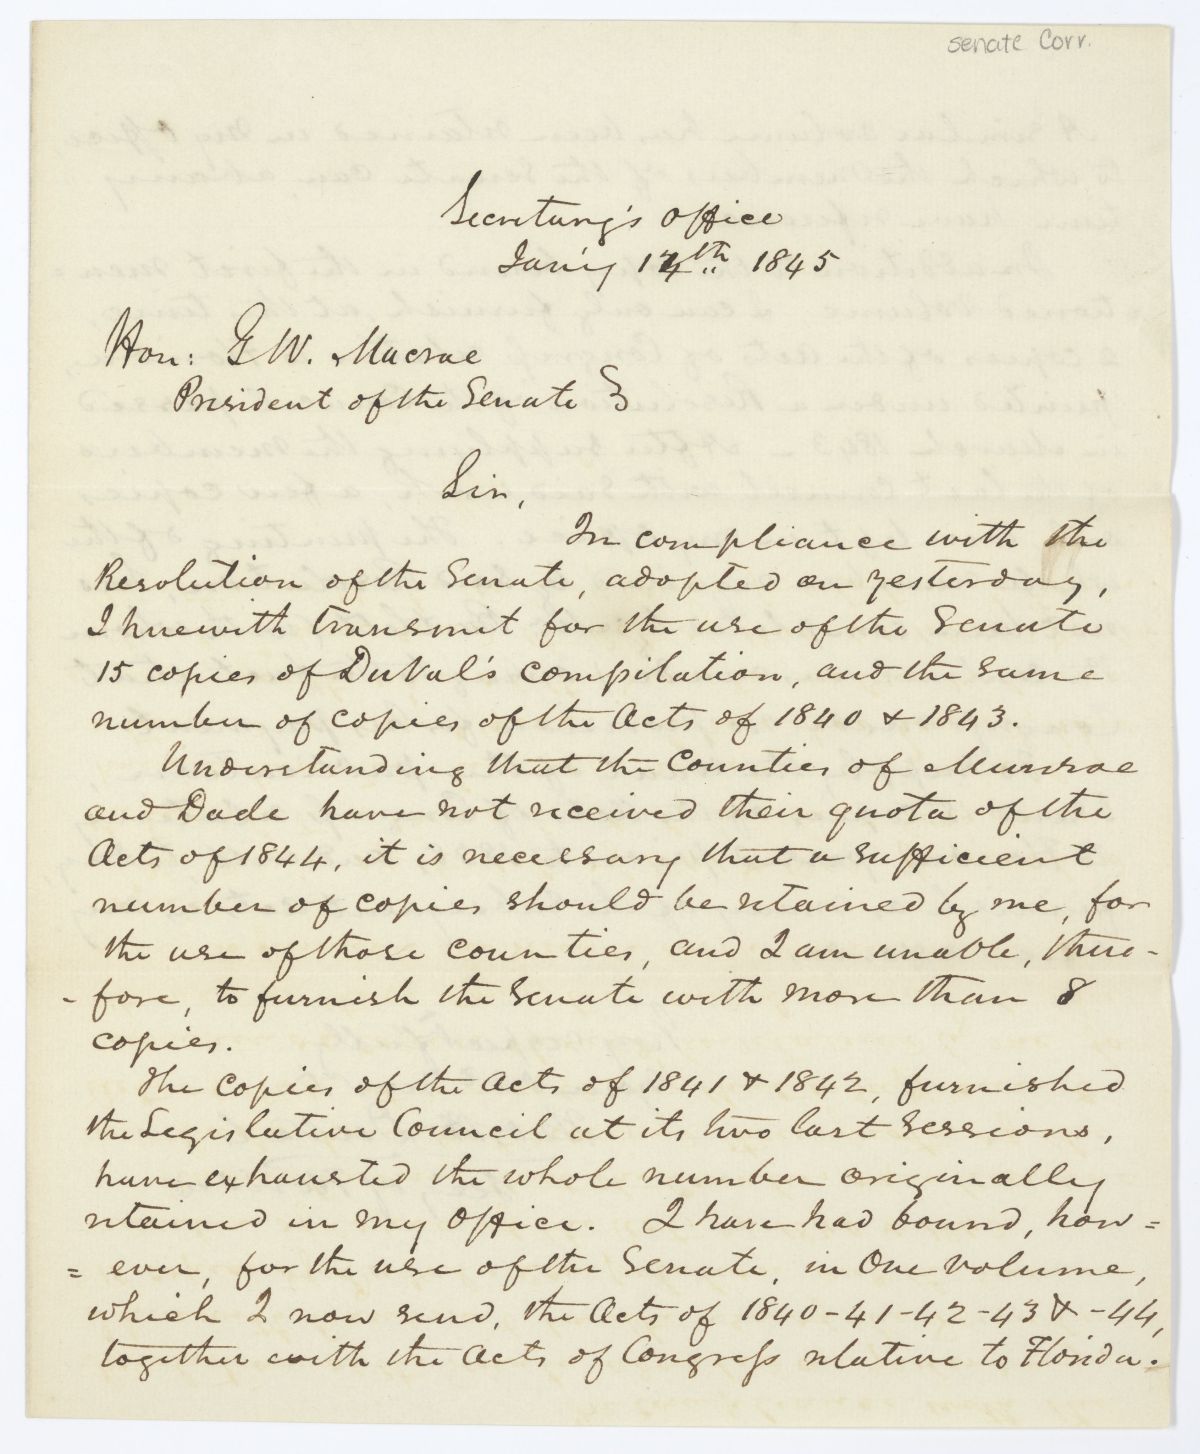 senate Corr.
Secretary's office
Jan'y 14th 1845
Hon: G W. Macrae
President of the Senate
Sir,
In compliance with the
Resolution of the Senate, adopted on yesterday,
I herewith transmit for the use of the Senate
15 copies of DuVal's compilation, and the same
number of copies of the Acts of 1840 & 1843.
Understanding that the Counties of Munroe
and Dade have not received their quota of the
Acts of 1844, it is necessary that a sufficient
number of copies should be retained by me, for
the use of those counties, and I am unable, there-
-fore, to furnish the Senate with more than 8
copies.
The copies of the Acts of 1841 & 1842, furnished
the Legislative Council at its two last sessions,
have exhausted the whole number originally
retained in my office. I have had bound, how=
=ever, for the use of the Senate, in One volume,
which I now send, the Acts of 1840-41-42-43 & -44,
together with the Acts of Congress relative to Florida.